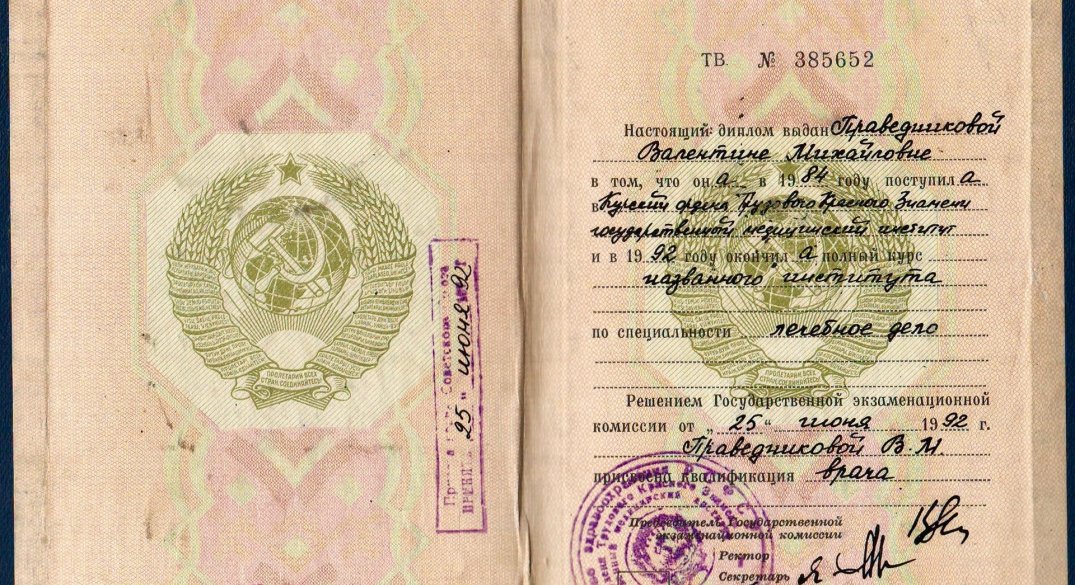 ПРОЛЕТАРИИ ВСЕХ
СТРАН, СОЕДИНЯЙТЕСЬ!
Советского
25 " июня 92
ТВ № 385652
Настоящий диплом выдан Праведниковой
Валентине Михайловне
в том, что она в 1984 году поступила
в Курский ордена Трудового Красного Знамени
государственный медицинский институт
и в 1992 году окончила полный курс
названного института
по специальности лечебное дело
ПРОЛЕТАРИИ ВСЕХ
СТРАН, СОЕДИНЯЙТЕСЬ!
Решением Государственной экзаменационной
комиссии от „ 25 “ июня 1992 г.
Праведниковой В. М.
присвоена квалификация врача
здравоохранения РСФС
Трудового Красного Знамени
медицинский инст
Председатель Государственной
экзаменационной комиссии
Ректор
Секретарь